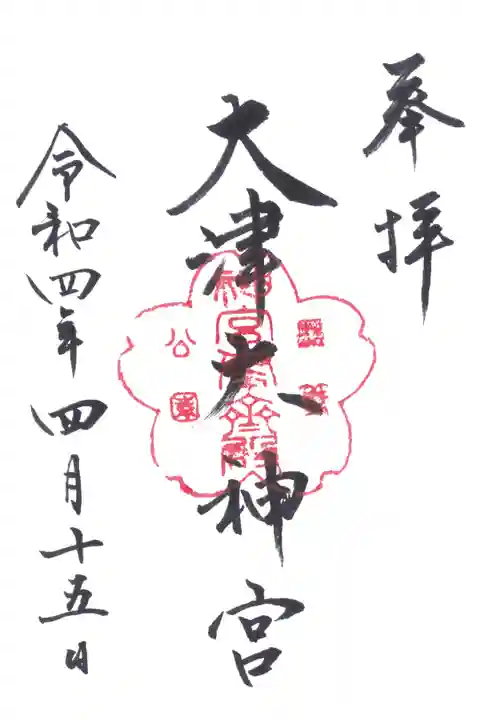 奉拝
大津大神宮
令和四年四月十五日
公園